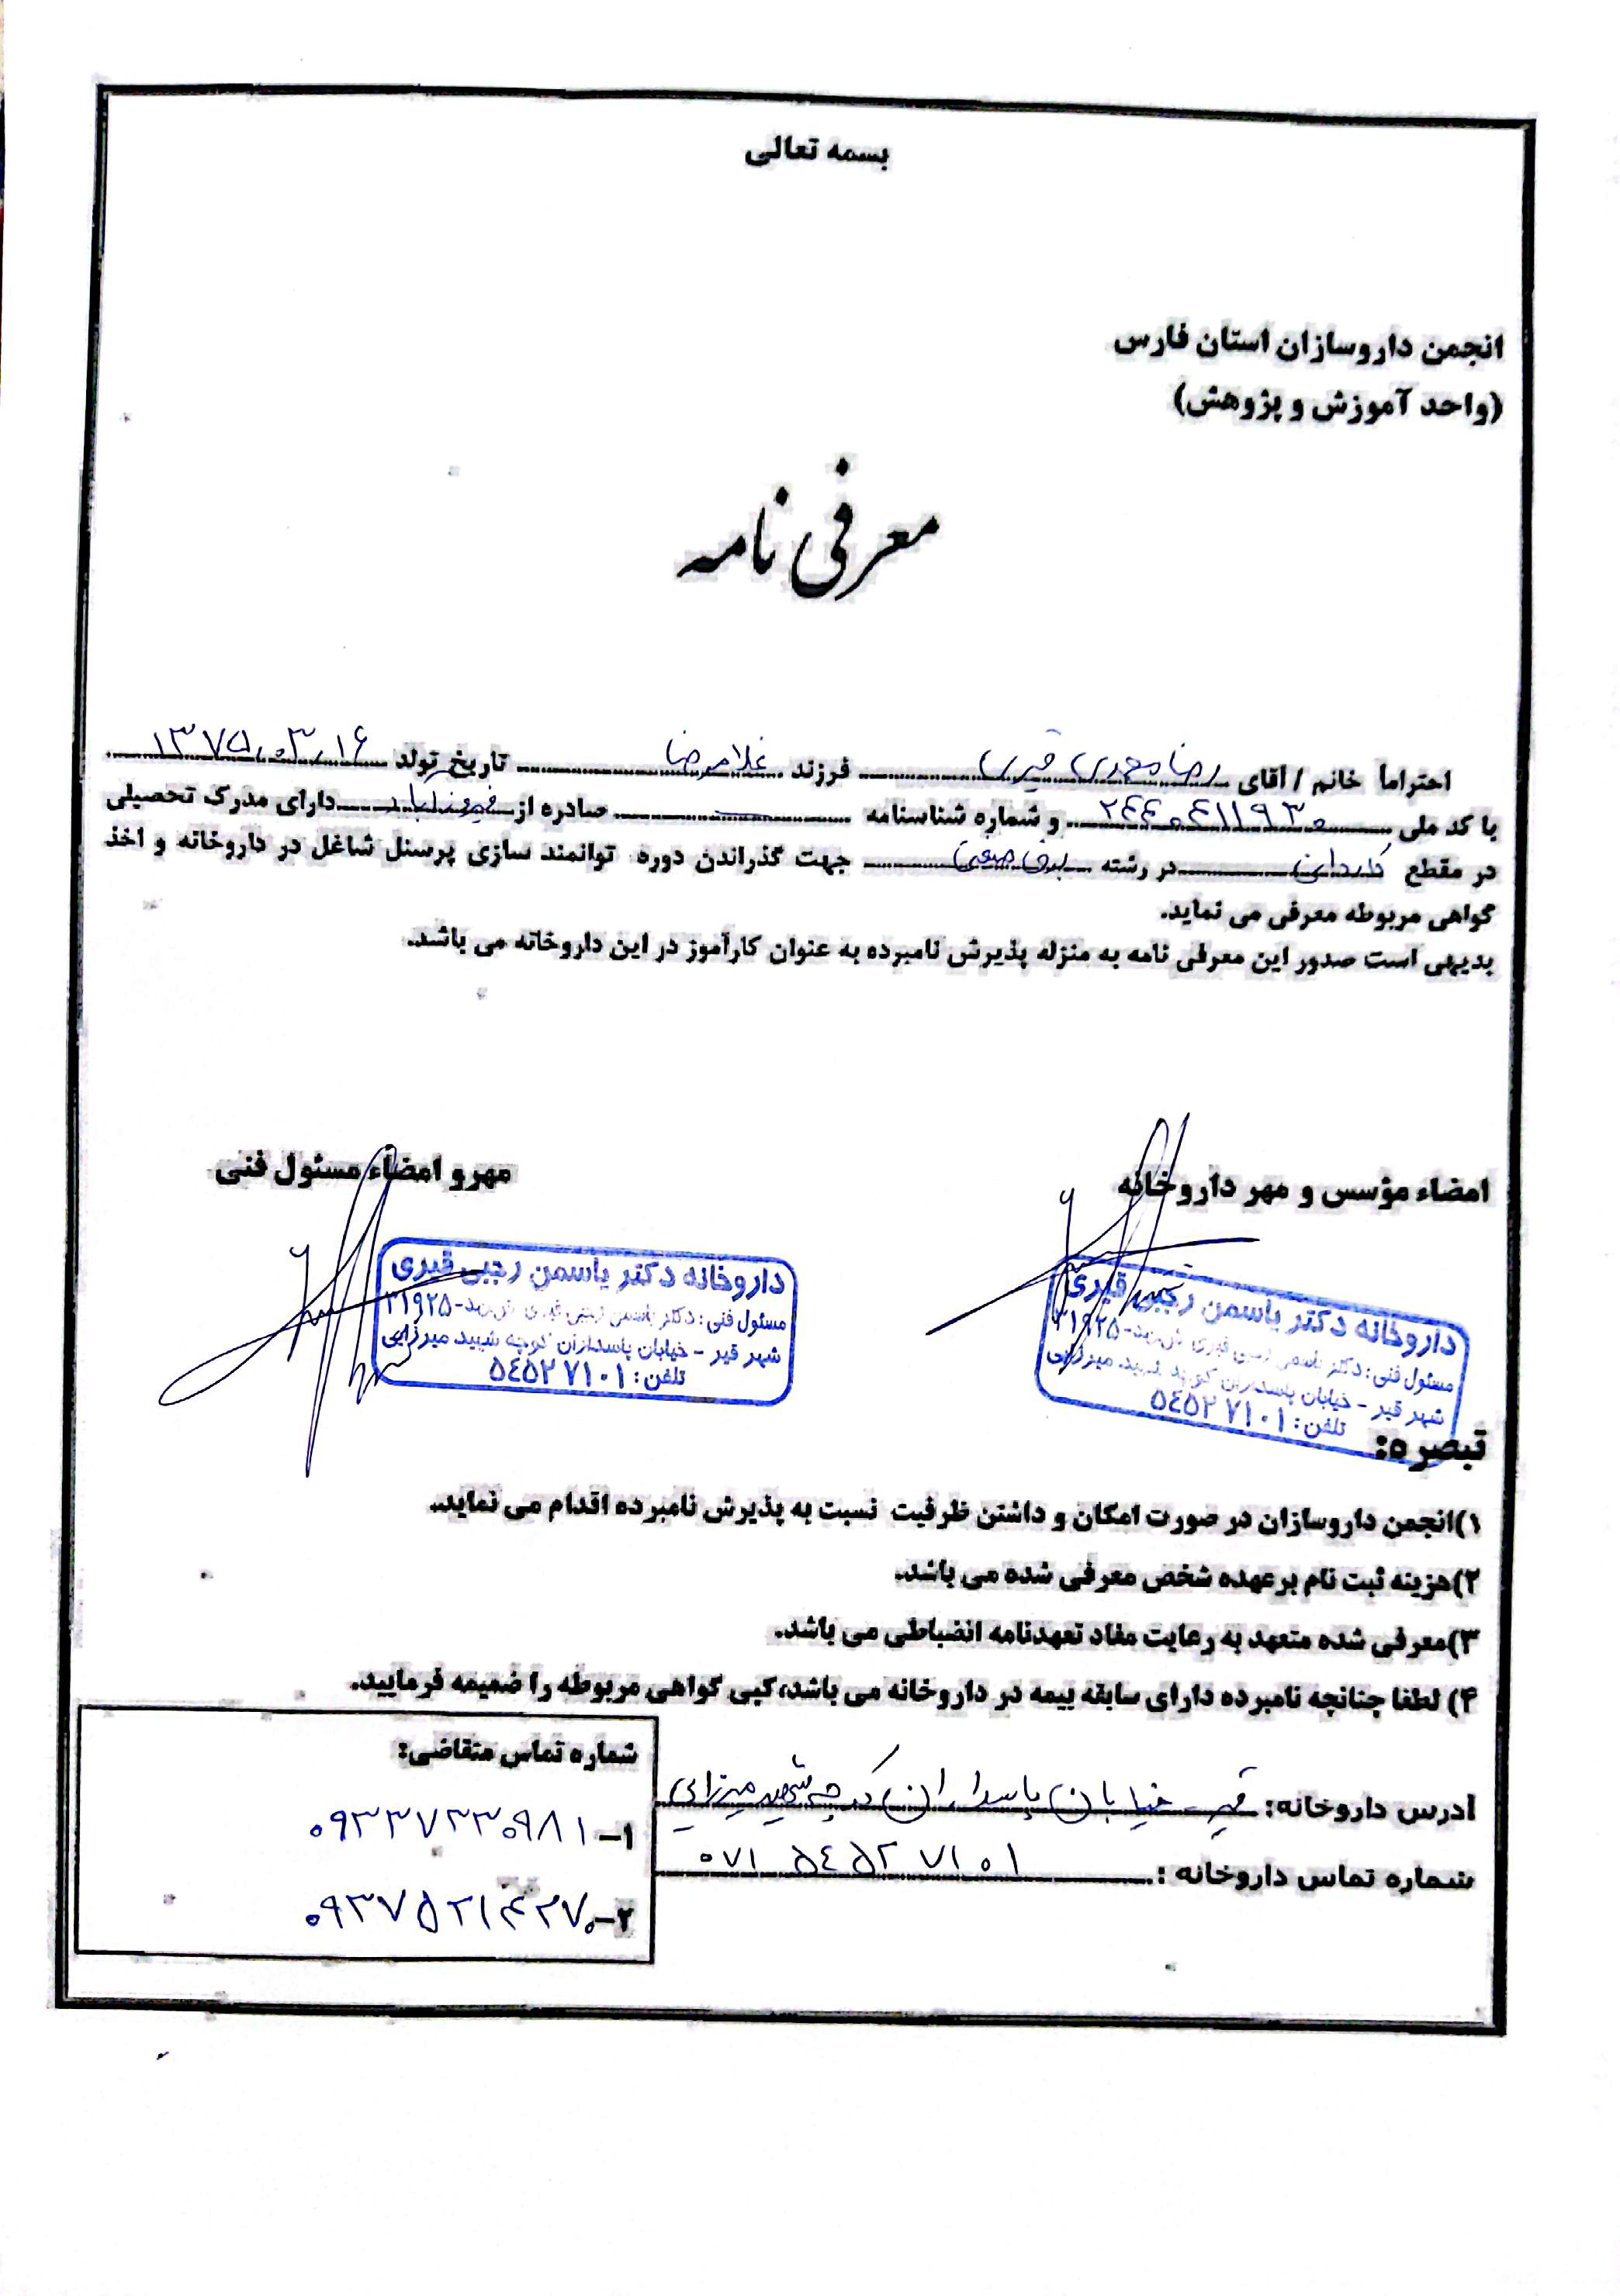 بسمه تعالی
انجمن داروسازان استان فارس
(واحد آموزش و پژوهش)
معرفی نامه
احتراماً خانم / آقای رضا محمدی قیری فرزند غلامرضا تاریخ تولد ۱۳۷۵،۰۳،۱۶
با کد ملی ۲۴۴۰۴۱۱۹۳۰ و شماره شناسنامه ـــ صادره از فیروزآباد دارای مدرک تحصیلی
در مقطع کاردانی در رشته برق صنعتی جهت گذراندن دوره توانمند سازی پرسنل شاغل در داروخانه و اخذ
گواهی مربوطه معرفی می نماید.
بدیهی است صدور این معرفی نامه به منزله پذیرش نامبرده به عنوان کارآموز در این داروخانه می باشد.
امضاء مؤسس و مهر داروخانه
مهر و امضاء مسئول فنی
داروخانه دکتر یاسمن رجبی قیری
مسئول فنی: دکتر یاسمن رجبی قیری ۳۱۹۲۵
شهر قیر - خیابان پاسداران کوچه شهید میرزایی
تلفن: ۵٤۵۲۷۱۰۱
داروخانه دکتر یاسمن رجبی قیری
مسئول فنی: دکتر یاسمن رجبی قیری ۳۱۹۲۵
شهر قیر - خیابان پاسداران کوچه شهید میرزایی
تلفن: ۵٤۵۲۷۱۰۱
تبصره:
۱)انجمن داروسازان در صورت امکان و داشتن ظرفیت نسبت به پذیرش نامبرده اقدام می نماید.
۲)هزینه ثبت نام بر عهده شخص معرفی شده می باشد.
۳)معرفی شده متعهد به رعایت مفاد تعهدنامه انضباطی می باشد.
۴) لطفا چنانچه نامبرده دارای سابقه بیمه در داروخانه می باشد،کپی گواهی مربوطه را ضمیمه فرمایید.
آدرس داروخانه: قیر - خیابان پاسداران کوچه شهید میرزایی
شماره تماس داروخانه: ۰۷۱ ۵٤۵۲۷۱۰۱
شماره تماس متقاضی:
۱- ۰۹۳۳۷۲۳۰۹۸۱
۲- ۰۹۳۷۵۲۱۴۲۷۰